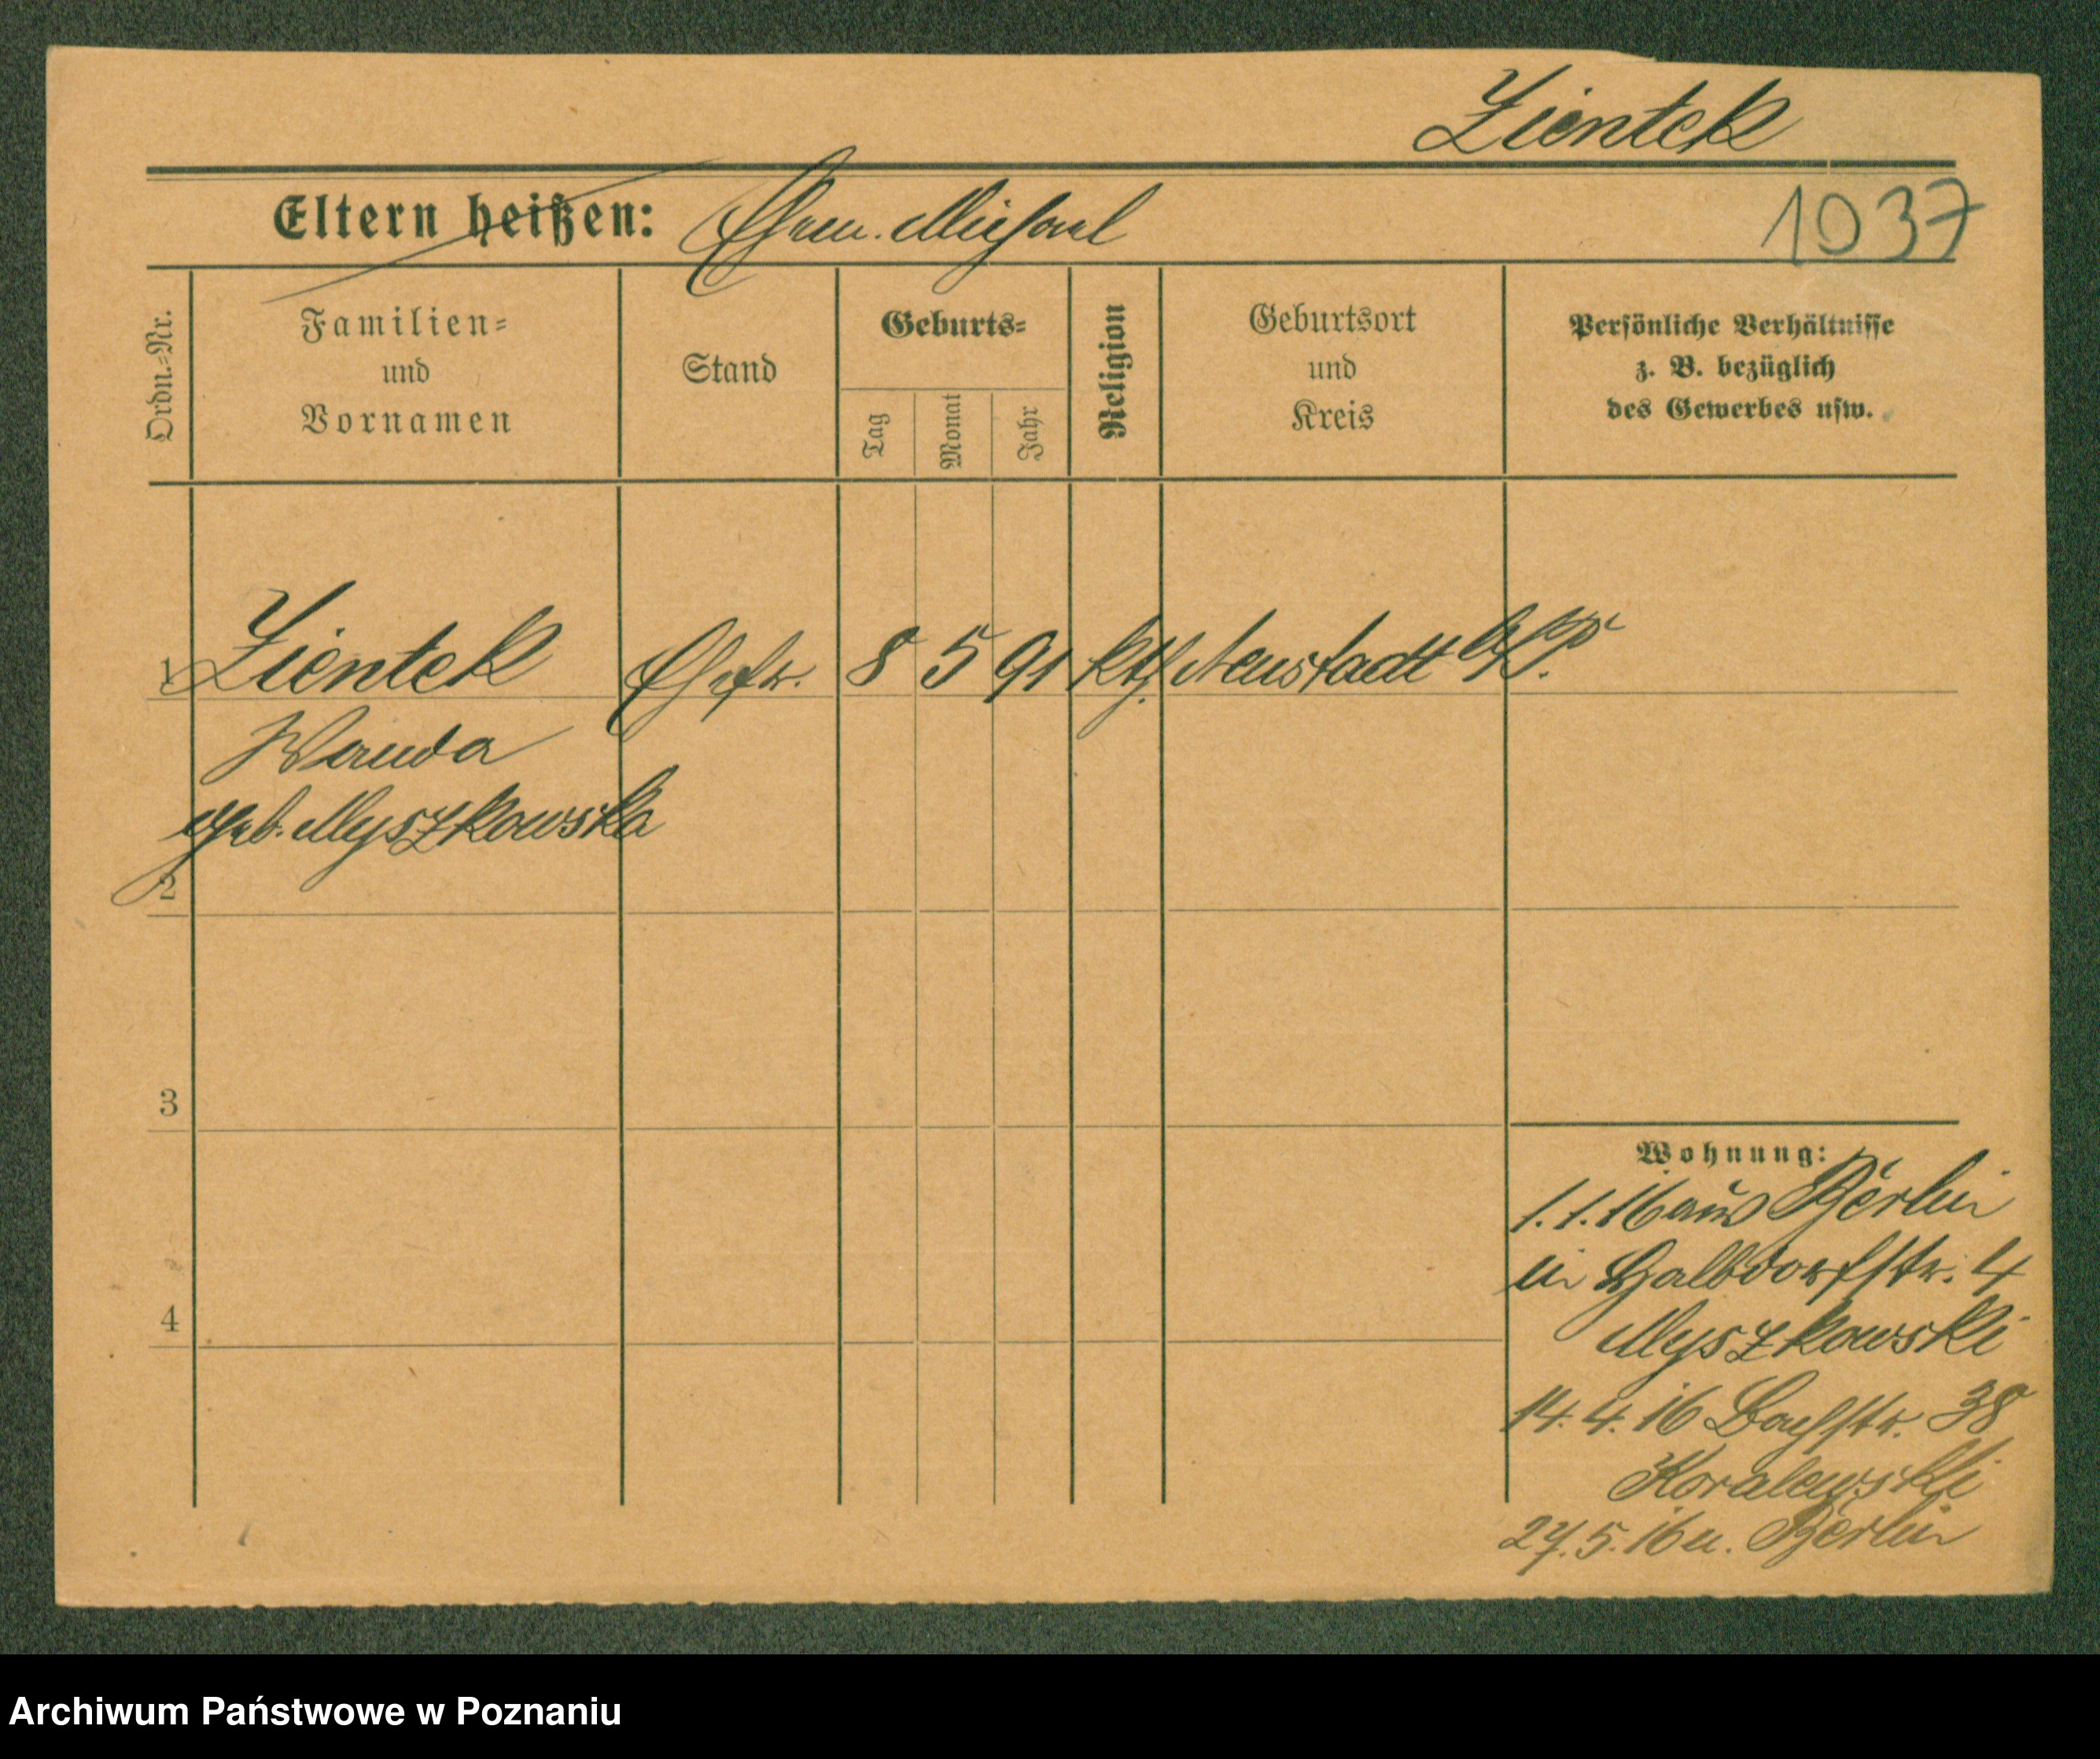 Zientek
Eltern heißen: Ehem. Michael
1037
Ordn.=Nr.
Familien=
und
Vornamen
Stand
Geburts=
Tag
Monat
Jahr
Religion
Geburtsort
und
Kreis
Persönliche Verhältnisse
z. B. bezüglich
des Gewerbes usw.
1 Zientek Ehefr. 8 5 91 kth. Neustadt
Wanda
geb. Myszkowska
2
3
4
Wohnung:
1.1.16 aus Berlin
in Halbdorfstr. 4
Myszkowski
14.4.16 Bachstr. 38
Koralewski
27.5.16 n. Berlin
Archiwum Państwowe w Poznaniu